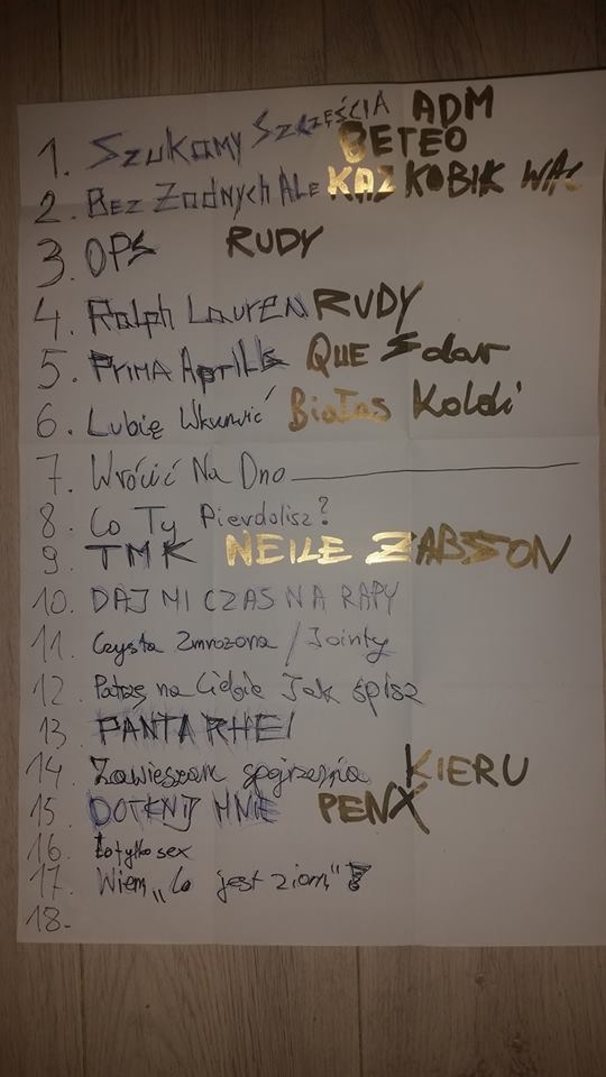 1. Szukamy Szczęścia ADM
BETEO
2. Bez Żadnych Ale KAZ KOBIK
3. OPS RUDY
4. Ralph Lauren RUDY
5. Prima Aprilis QUE Solar
6. Lubię Wkurwić Białas Koldi
7. Wrócić Na Dno
8. Co Ty Pierdolisz?
9. TMK NEILE ZABSON
10. DAJ MI CZAS NA RAPY
11. Czysta Zmrożona / Jointy
12. Patrzę na Ciebie Jak śpisz
13. PANTA RHEI
14. Zawieszam spojrzenia KIERU
15. DOTKNIJ MNIE PENX
16. to tylko sex
17. Wiem „Co jest ziom"?
18.